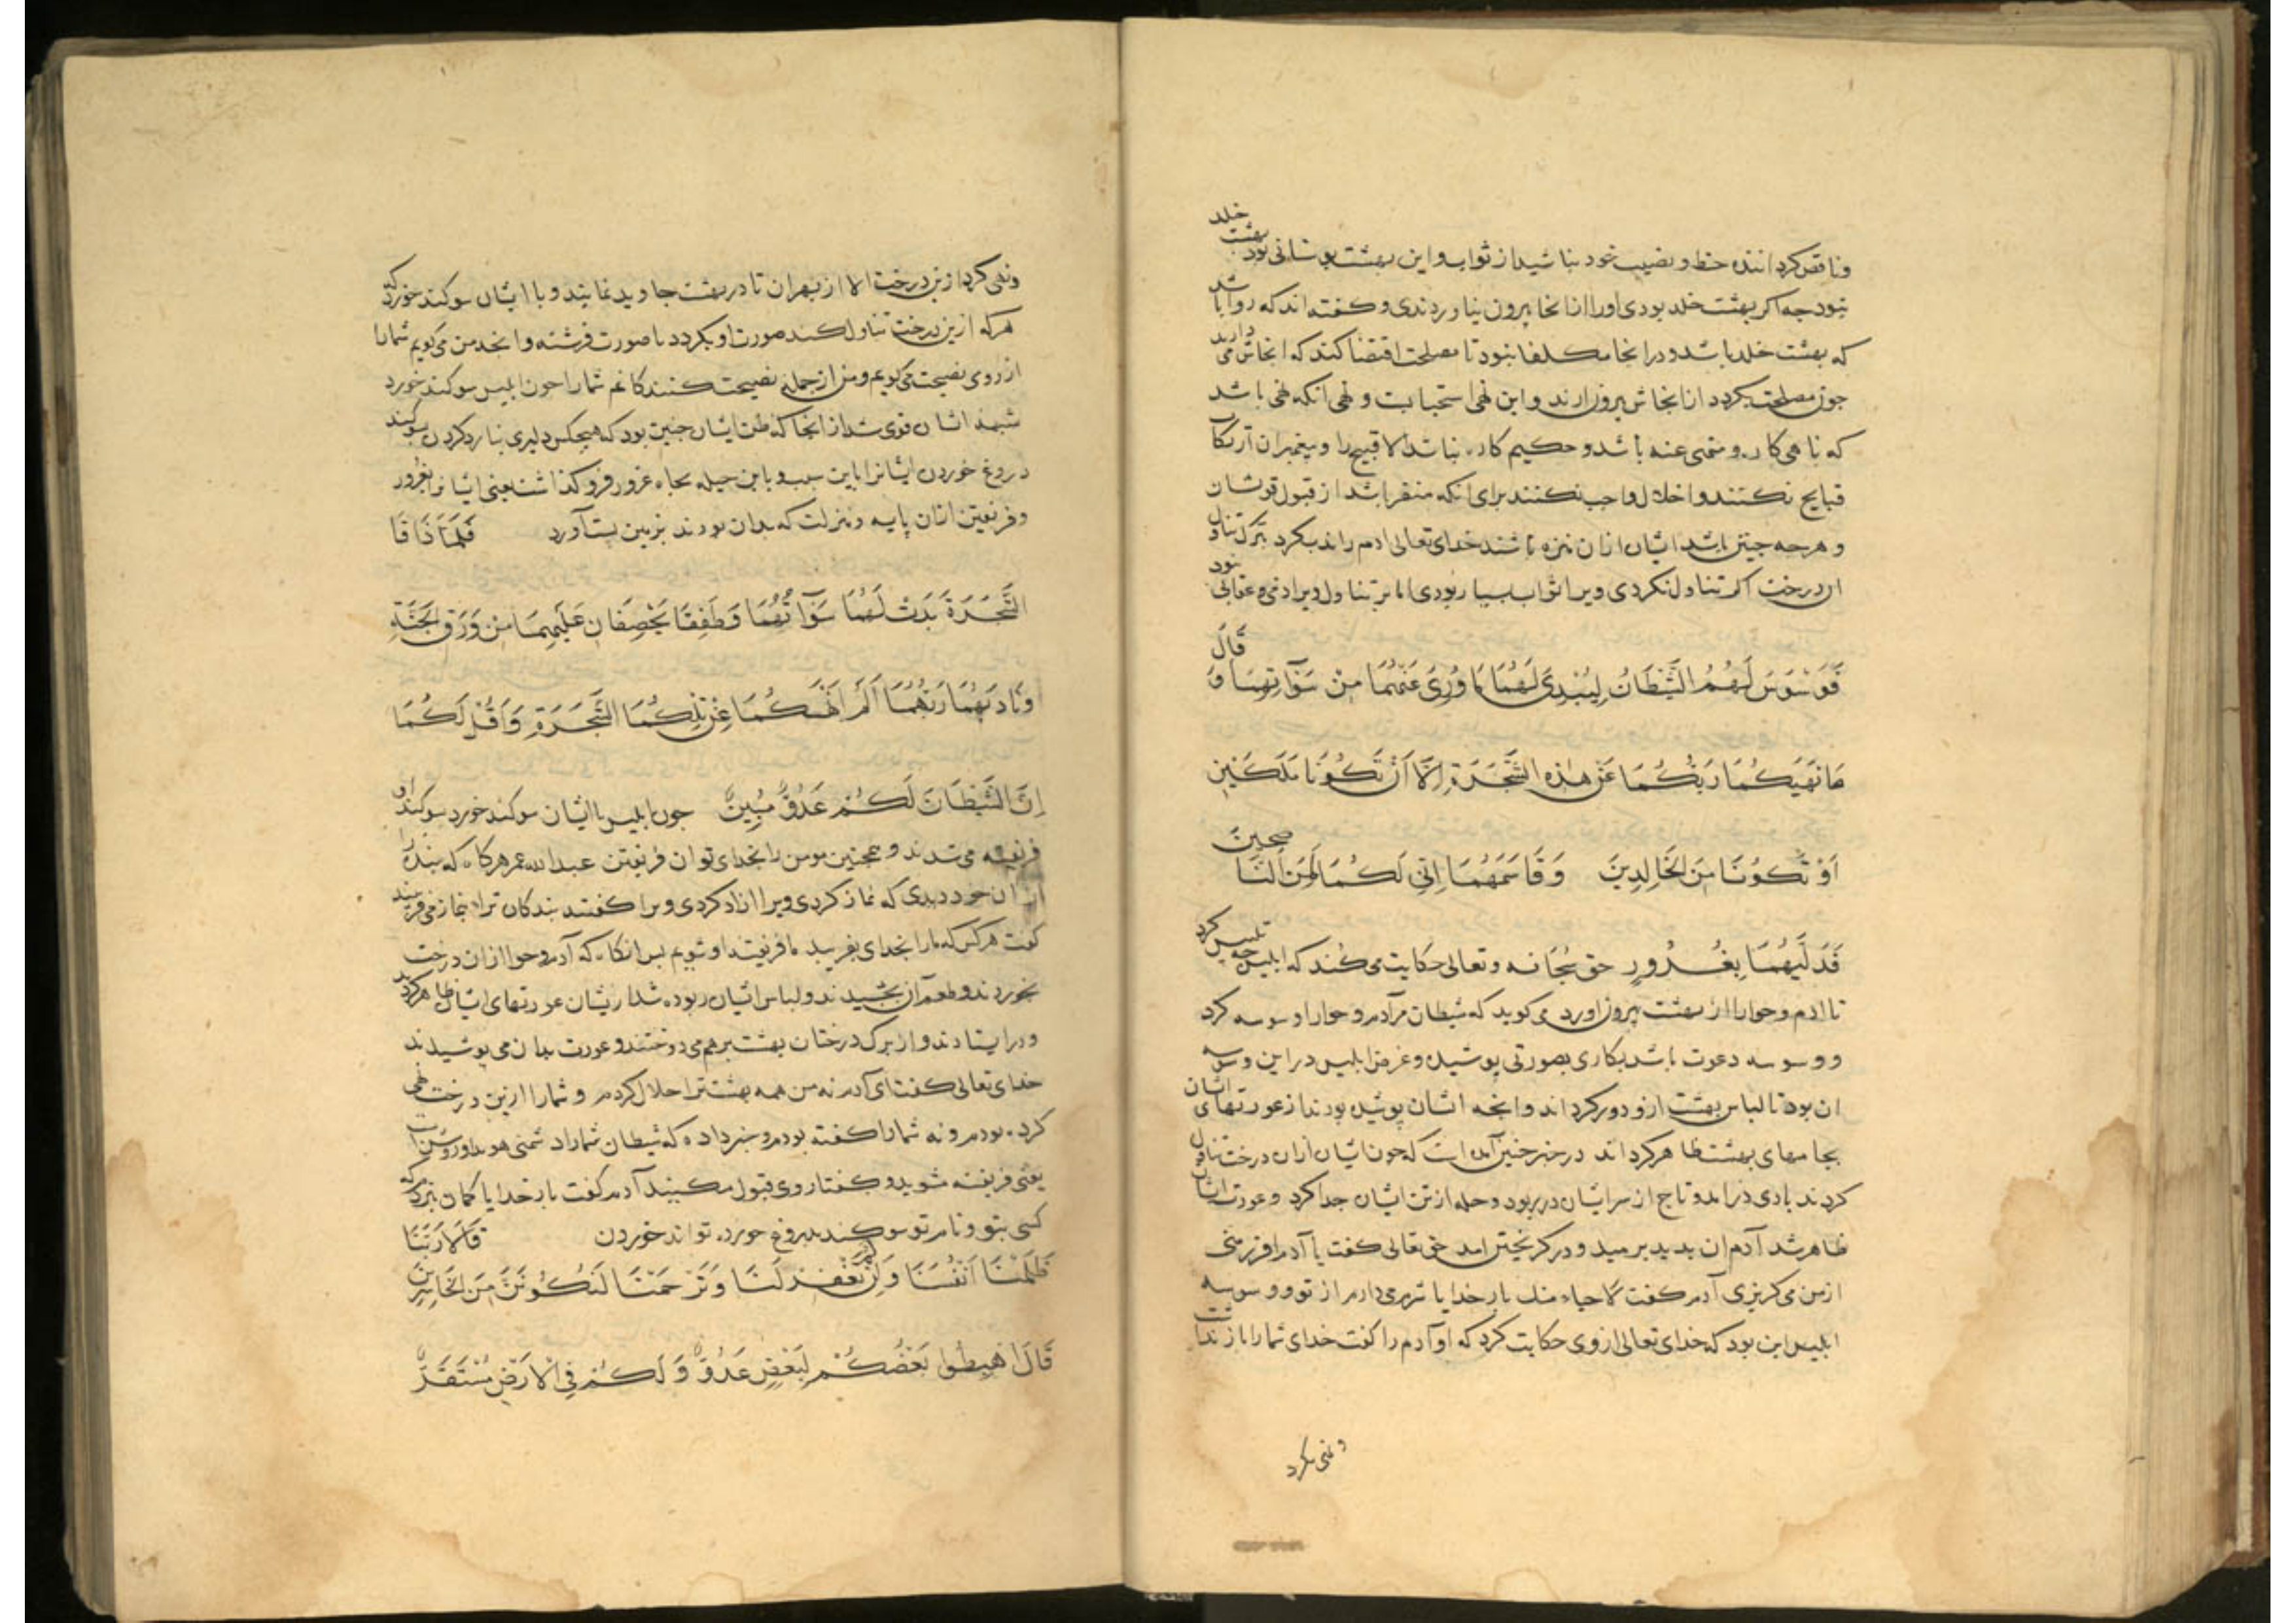 وناقص کرد اننده حظ و نصیب خود نباشید از ثواب و این بهشت بوستانی بود بهشت خلد
نبود جه اکر بهشت خلد بودی اورا از انجا بیرون نیاوردندی و کفته اند که روا باشد
که بهشت خلد باشد و در انجا مکلف نبود تا مصلحت اقتضا کند که انجاش می دارند
جون مصلحت بکردد از انجاش بیرون ارند و این نهی استحبابست و نهی انکه نهی باشد
که ناهی کاره منهی عنه باشد و حکیم کاره نباشد الا قبیح را و پیغمبران ارتکاب
قبایح نکنند و اخلال واجب نکنند برای انکه منفر باشد از قبول قولشان
و هرجه جنین باشد ایشان ازان منزه باشند خدای تعالی ادم را ندب کرد بترک تناول
ان درخت اکر تناول نکردی ویرا ثواب بسیار بودی اما بر تناول ویرا ذمی و عقابی نبود
فَوَسْوَسَ لَهُمُ الشَّيْطَانُ لِيُبْدِيَ لَهُمَا مَا وُرِيَ عَنْهُمَا مِنْ سَوْآتِهِمَا وَ قَالَ
مَا نَهَيكُمَا رَبُّكُمَا عَنْ هٰذِهِ الشَّجَرَةِ اِلَّا اَنْ تَكُونَا مَلَكَيْنِ
اَوْ تَكُونَا مِنَ الْخَالِدِينَ وَقَاسَمَهُمَا اِنِّي لَكُمَا لَمِنَ النَّاصِحِينَ
فَدَلَّيٰهُمَا بِغُرُورٍ حق سبحانه و تعالی حکایت می کند که ابلیس جه تلبیس کرد
تا ادم و حوا را از بهشت بیرون اورد می کوید که شیطان مر آدم و حوا را وسوسه کرد
و وسوسه دعوت باشد بکاری بصورتی پوشیده و غرض ابلیس در این وسوسه
ان بود تا لباس بهشت ازو دور کرداند و انجه ایشان پوشیده بودند از عورتهای ایشان
بجامهای بهشت ظاهر کرداند در خبر جنین آمده است که جون ایشان ازان درخت تناول
کردند بادی درامد و تاج از سر ایشان در ربود و حله از تن ایشان جدا کرد و عورت ایشان
ظاهر شد آدم ان بدید برمید و در کریختن امد حق تعالی کفت یا آدم افررا منی
از من می کریزی آدم کفت لا حیاء منک بار خدایا شرم می دارم از تو و وسوسه
ابلیس این بود که خدای تعالی ازوی حکایت کرد که او آدم را کفت خدای شما را باز نداشت
و نهی نکرد
ونهی نکرد ازین درخت الا از بهر ان تا در بهشت جاوید نمانید و با ایشان سوکند خورد که
هرکه ازین درخت تناول کند صورت او بکردد با صورت فرشته و انجه من می کویم شما را
از روی نصیحت می کویم و من از جمله نصیحت کنندکانم شما را جون ابلیس سوکند خورد
شبهه ایشان قوی شد از انجا که ظن ایشان جنین بود که هیجکس دلیری نیارد کردن بسوکند
دروغ خوردن ایشانرا باین سبب و باین حیله بجاه غرور فرو کذاشت یعنی ایشانرا بغرور
و فریفتن ازان پایه و منزلت که بدان بودند بزمین پست آورد فَلَمَّا ذَاقَا
الشَّجَرَةَ بَدَتْ لَهُمَا سَوْآتُهُمَا وَطَفِقَا يَخْصِفَانِ عَلَيْهِمَا مِنْ وَرَقِ الْجَنَّةِ
وَنَادَيٰهُمَا رَبُّهُمَا اَلَمْ اَنْهَكُمَا عَنْ تِلْكُمَا الشَّجَرَةِ وَاَقُلْ لَكُمَا
اِنَّ الشَّيْطَانَ لَكُمَا عَدُوٌّ مُبِينٌ جون ابلیس با ایشان سوکند خورد بسوکند او
فریفته می شدند و همجنین مومن را بخدای توان فریفتن عبدالله عمر هرکاه که بنده را
از ان خود دیدی که نماز کردی ویرا ازاد کردی ویرا کفتند بندکان ترا بنماز می فریبند
کفت هرکس که مارا بخدای بفریبد ما فریفته او شویم پس انکاه که آدم و حوا ازان درخت
بخوردند و طعم آن بچشیدند و لباس ایشان ربوده شد از یشان عورتهای ایشان ظاهر کردید
و در ایستادند و از برک درختان بهشت بر هم می دوختند و عورت بدان می پوشیدند
خدای تعالی کفت ای آدم نه من همه بهشت ترا حلال کردم و شما را ازین درخت نهی
کرده بودم و نه شما را کفته بودم و خبر داده که شیطان شما را دشمنی هویدا و روشن است
یعنی فریفته مشوید و کفتار وی قبول مکنید آدم کفت بار خدایا کمان نبردم که
کسی بتو و نام تو سوکند بدروغ خورد تواند خوردن قَالَا رَبَّنَا
ظَلَمْنَا اَنْفُسَنَا وَاِنْ لَمْ تَغْفِرْ لَنَا وَتَرْحَمْنَا لَنَكُونَنَّ مِنَ الْخَاسِرِينَ
قَالَ اهْبِطُوا بَعْضُكُمْ لِبَعْضٍ عَدُوٌّ وَلَكُمْ فِي الْاَرْضِ مُسْتَقَرٌّ